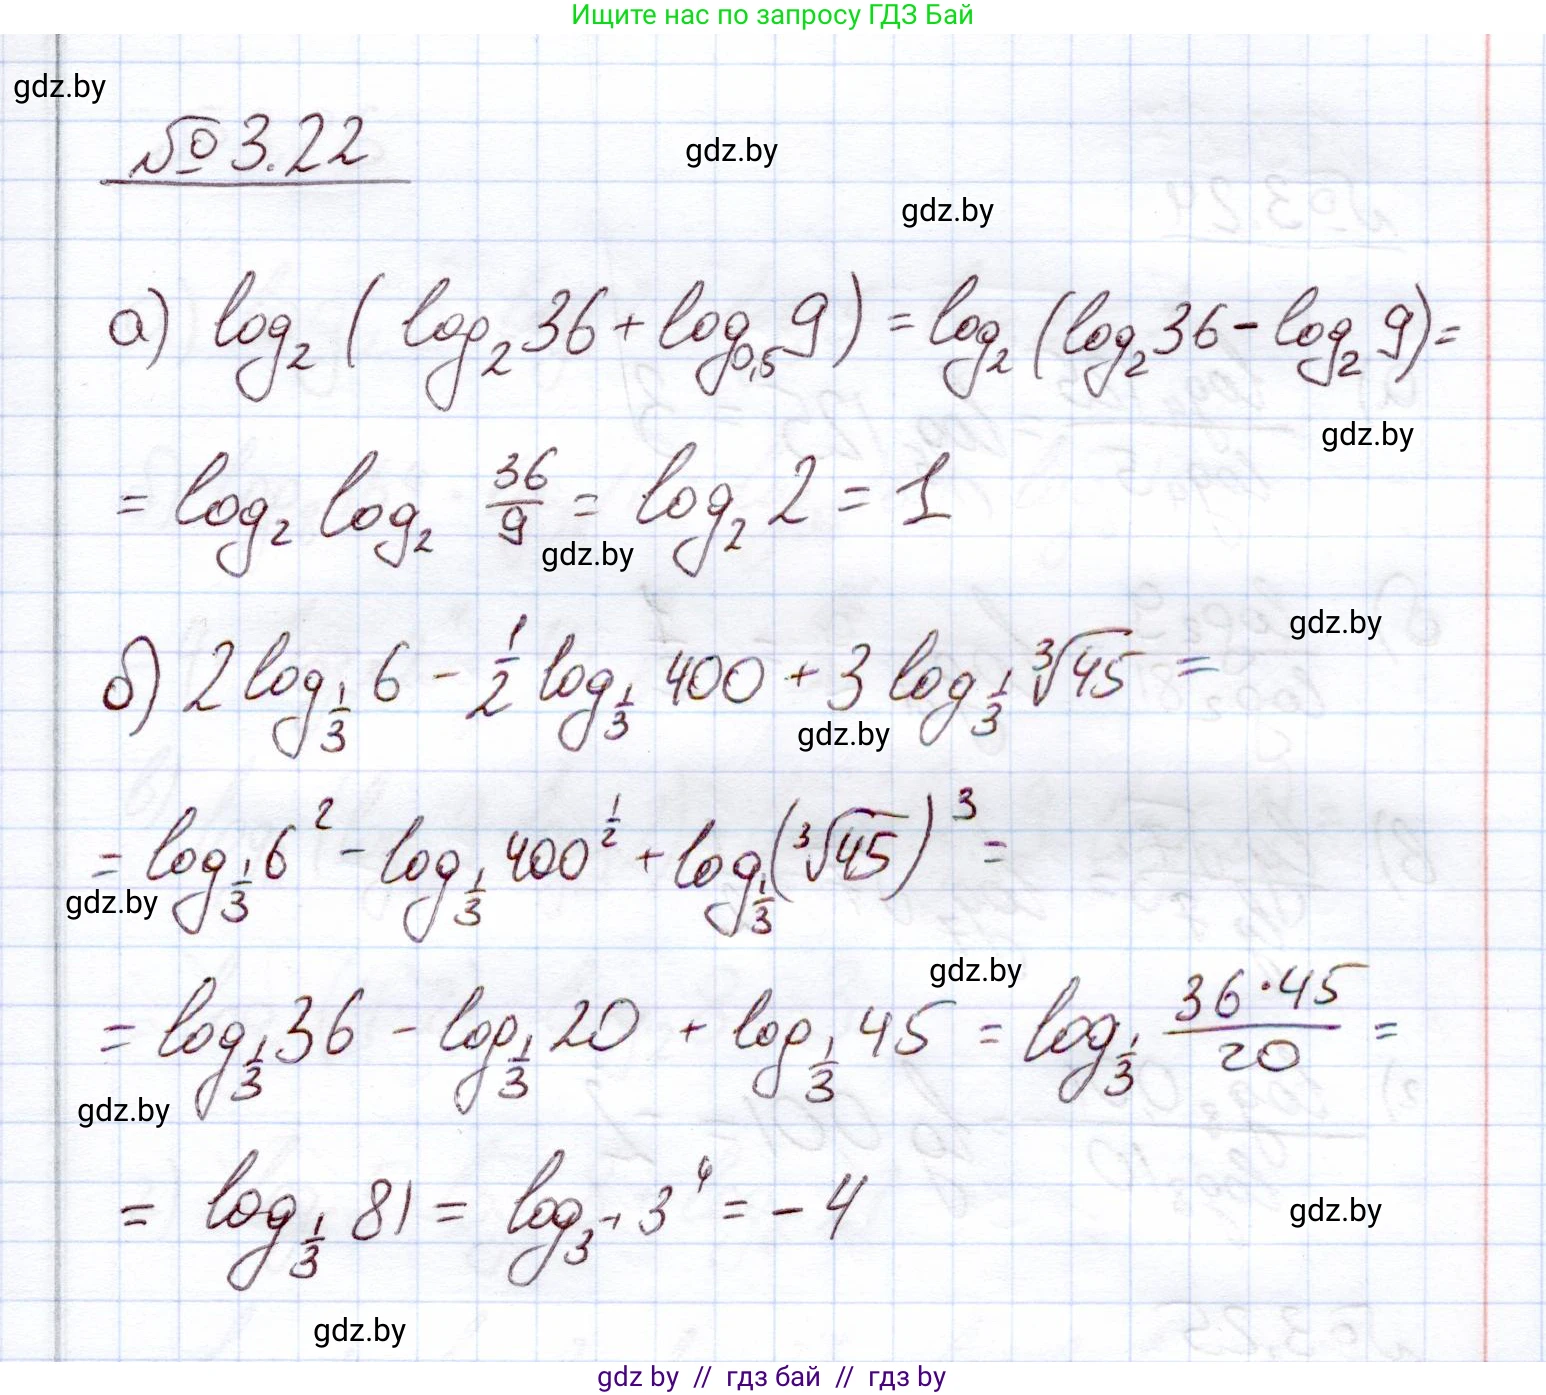 Ищите нас по запросу ГДЗ Бай
gdz.by
№ 3.22
gdz.by
gdz.by
а) log₂ ( log₂ 36 + log₀,₅ 9 ) = log₂ (log₂ 36 - log₂ 9) =
gdz.by
= log₂ log₂ 36/9 = log₂ 2 = 1
gdz.by
gdz.by
б) 2 log_{1/3} 6 - 1/2 log_{1/3} 400 + 3 log_{1/3} ∛45 =
gdz.by
= log_{1/3} 6² - log_{1/3} 400^{1/2} + log_{1/3} (∛45)³ =
gdz.by
gdz.by
= log_{1/3} 36 - log_{1/3} 20 + log_{1/3} 45 = log_{1/3} (36·45)/20 =
gdz.by
= log_{1/3} 81 = log_{3⁻¹} 3⁴ = -4
gdz.by
gdz.by
gdz by // гдз бай // гдз by